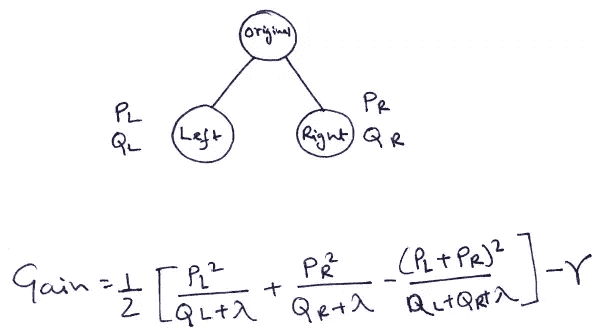 Original
P_L
Q_L
Left
Right
P_R
Q_R
Gain = 1/2 [ P_L^2/(Q_L+λ) + P_R^2/(Q_R+λ) - (P_L+P_R)^2/(Q_L+Q_R+λ) ] - γ